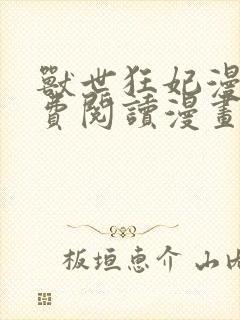 獸世狂妃漫
費閱讀漫畫
板垣恵介 山内